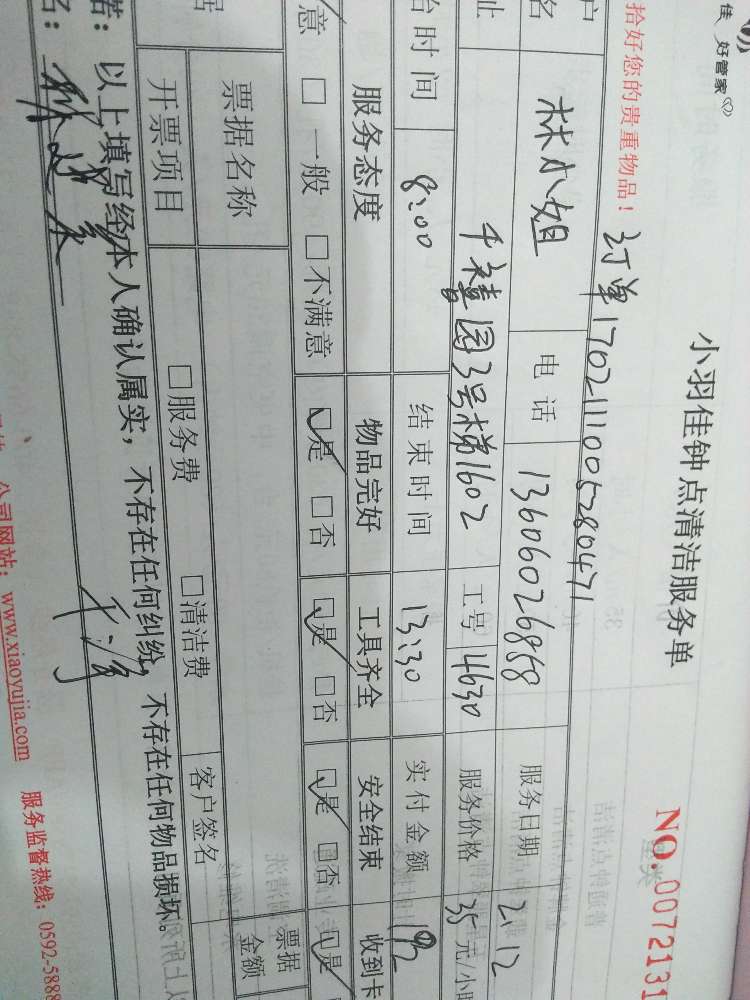 佳 好管家
小羽佳钟点清洁服务单
NO.0072131
拾好您的贵重物品！ 订单1702111005280471
户 名 林小姐 电话 13606026858 服务日期 2.12
址 千禧园3号梯1602 工号 4630 服务价格 35元/小时
台时间 8:00 结束时间 13:30 实付金额 192
服务态度 物品完好 工具齐全 安全结束 收到卡
意 □一般 □不满意 ☑是 □否 ☑是 □否 ☑是 □否 ☑是
票据名称 票据
金额
开票项目 □服务费 □清洁费 客户签名
若：以上填写经本人确认属实，不存在任何纠纷，不存在任何物品损坏。
名：
公司网站：www.xiaoyujia.com 服务监督热线：0592-5888